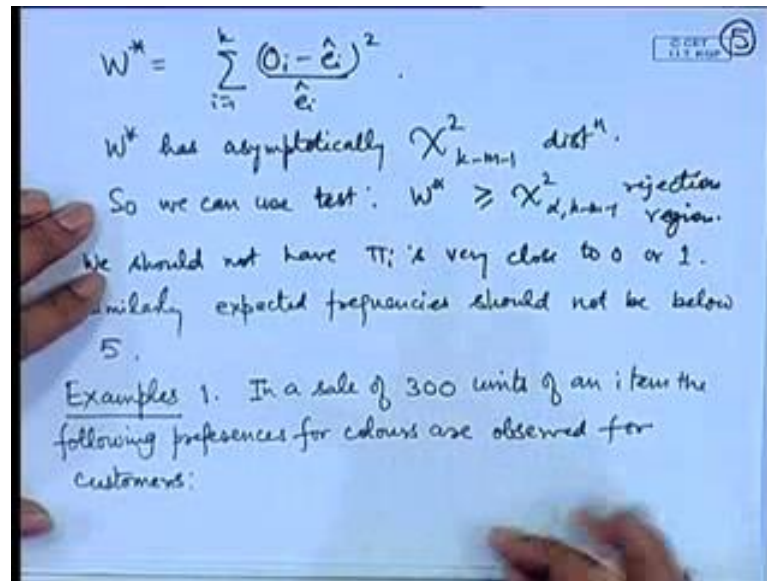 W* = Σ_{i=1}^{k} (O_i - ê_i)² / ê_i .
© CET
I.I.T. KGP
15
W* has asymptotically χ²_{k-m-1} distⁿ.
So we can use test: W* ≥ χ²_{α, k-m-1} rejection region.
We should not have π_i's very close to 0 or 1.
expected frequencies should not be below
5.
Examples 1. In a sale of 300 units of an item the
following preferences for colours are observed for
customers: